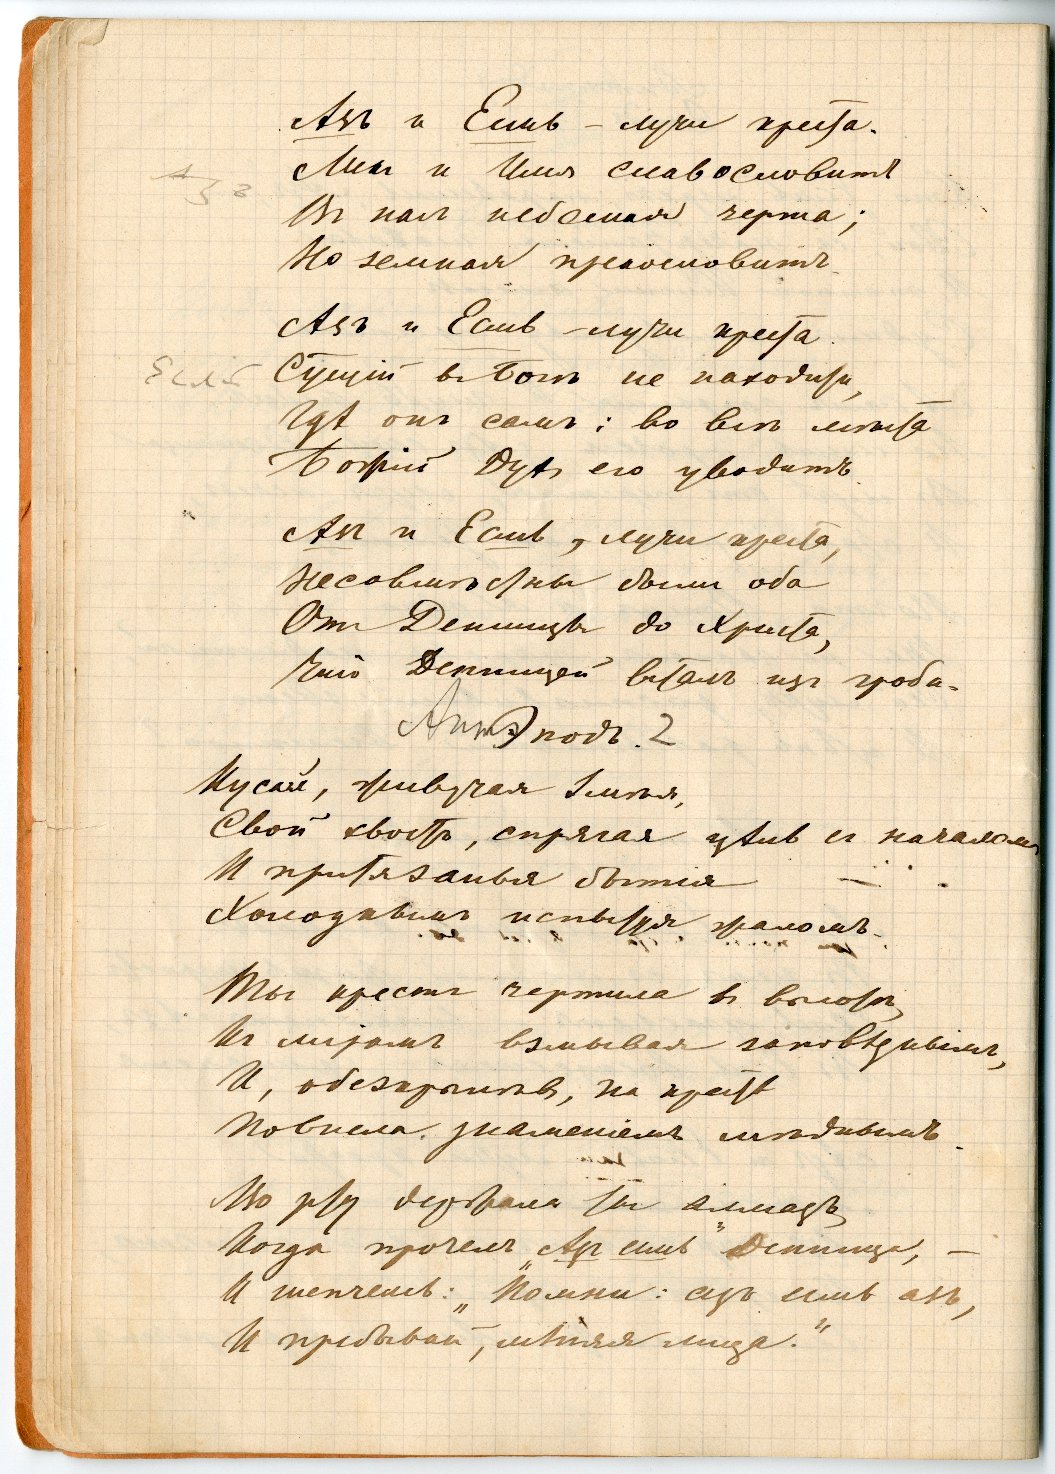 Азъ и Есмь – лучи креста.
Мы и Имя славословитъ
Въ нас небесная черта;
Но земная прекословитъ.
Азъ
Азъ и Есмь – лучи креста.
Есмь
Сущій въ Богѣ не находитъ,
Гдѣ онъ самъ; во всѣ мѣста
Божій Духъ его уводитъ.
Азъ и Есмь, лучи креста,
Несовмѣстны были оба
Отъ Денницы до Христа,
Что Денницей всталъ изъ гроба.
Антэподъ. 2
Кусай, живучая Змѣя,
Свой хвостъ, спрягая цѣль съ началомъ
И притязанья бытія
Холоднымъ испытуя жаломъ.
Ты крестъ чертила въ высотѣ,
Къ мірамъ взмывая заповѣднымъ,
И, обезкрылѣвъ, на крестѣ
Повисла знаменіемъ мѣднымъ.
Во рту держала ты алмазъ,
Когда прочелъ „Азъ есмь" Денница, –
И шепчешь: „Помни: азъ есмь азъ,
И пребывай, мѣняя лица."